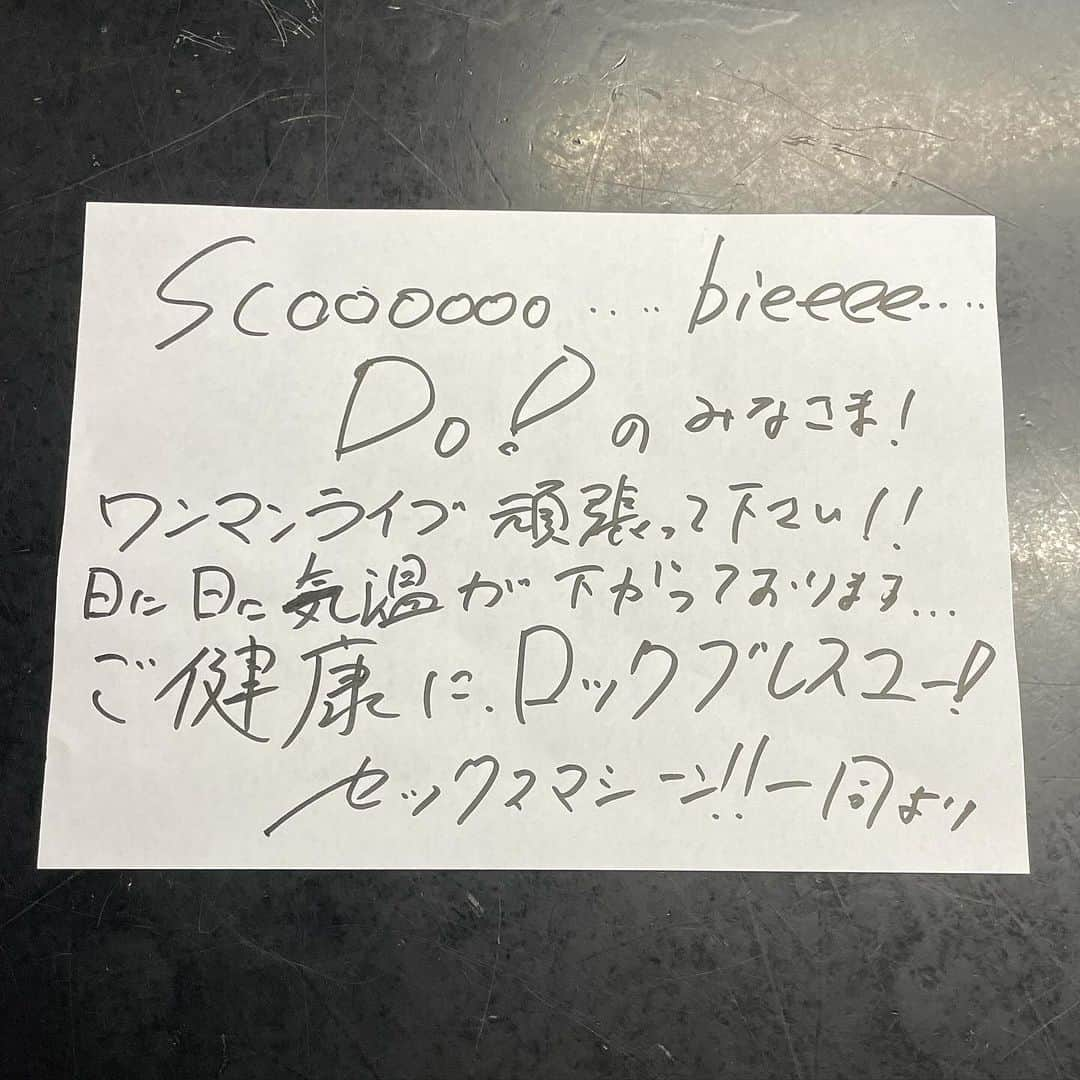 Scoooooo‥‥bieeeee‥‥
Do!のみなさま!
ワンマンライブ頑張って下さい!!
日に日に気温が下がっております...
ご健康に、ロックブレスユー!
セックスマシーン!!一同より